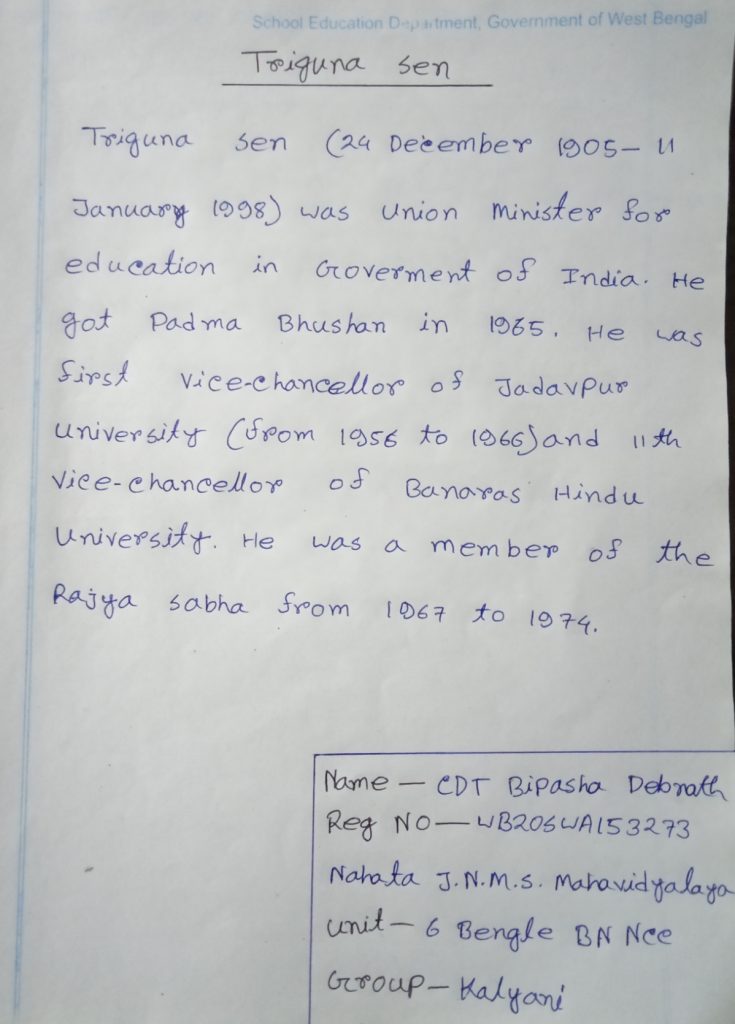 School Education Department, Government of West Bengal
Triguna Sen
Triguna Sen (24 December 1905- 11
January 1998) was Union Minister for
education in Goverment of India. He
got Padma Bhushan in 1965. He was
first vice-chancellor of Jadavpur
University (from 1956 to 1966) and 11th
vice-chancellor of Banaras Hindu
University. He was a member of the
Rajya sabha from 1967 to 1974.
Name - CDT Bipasha Debnath
Reg NO - WB20SWA153273
Nahata J.N.M.S. Mahavidyalaya
unit - 6 Bengle BN Ncc
Group - Kalyani